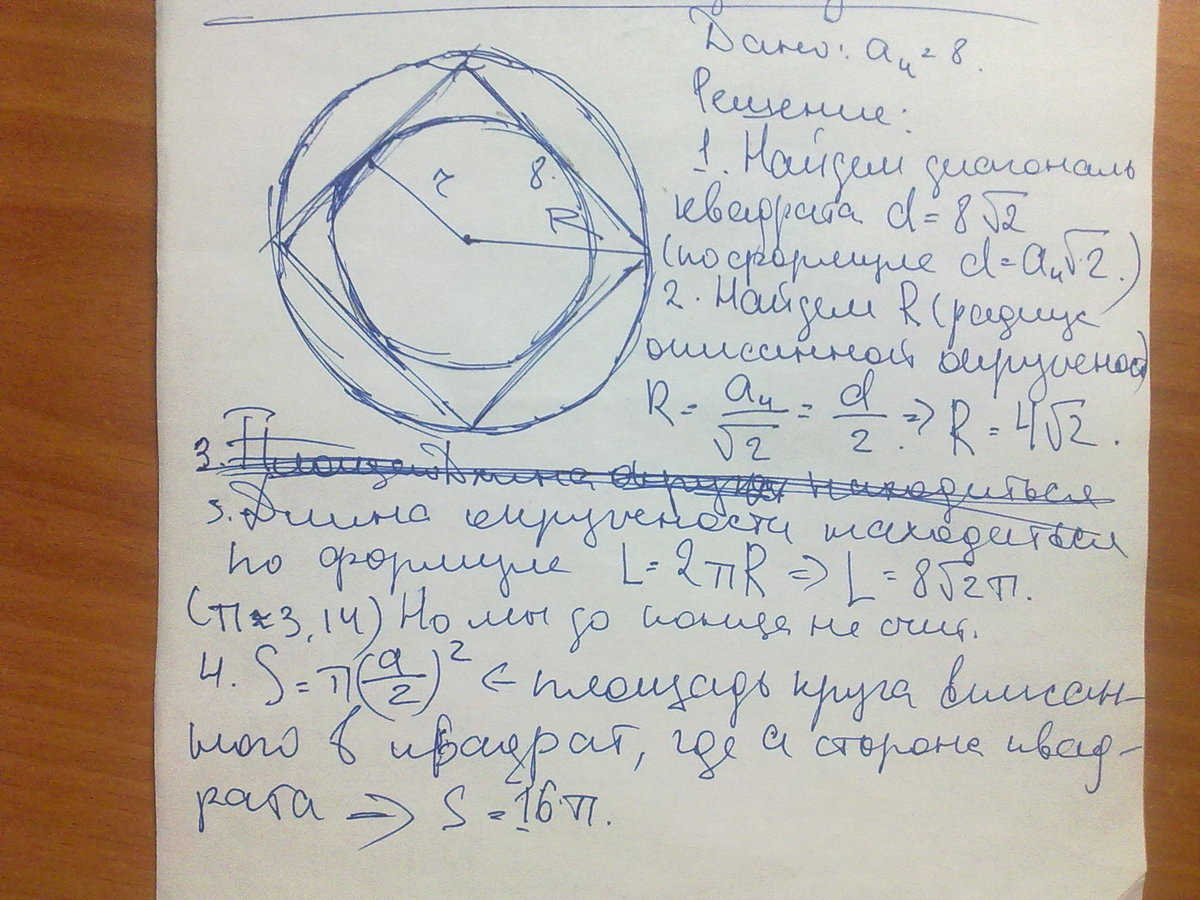 Дано: a₄ = 8.
Решение:
1. Найдем диагональ
квадрата d = 8√2
(по формуле d = a₄√2.)
2. Найдем R (радиус
описанной окружност)
R = a₄/√2 = d/2 ⇒ R = 4√2.
r
8.
R
3. Площадь Длина находиться
3. Длина окружности находиться
по формуле L = 2πR ⇒ L = 8√2π.
(π ≈ 3,14) Но мы до конца не счит.
4. S = π(a/2)² ← площадь круга вписан-
ного в квадрат, где a сторона квад-
рата ⇒ S = 16π.